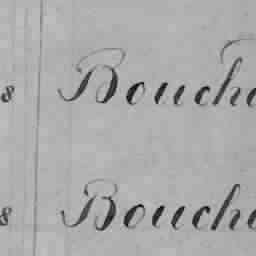 8 Boucha
8 Boucha